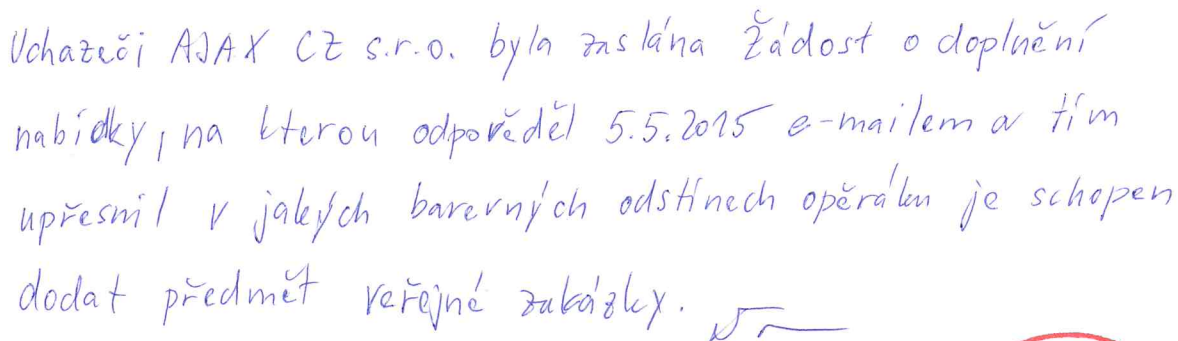 Uchazeči AJAX CZ s.r.o. byla zaslána Žádost o doplnění
nabídky, na kterou odpověděl 5.5.2015 e-mailem a tím
upřesnil v jakých barevných odstínech opěráku je schopen
dodat předmět veřejné zakázky.